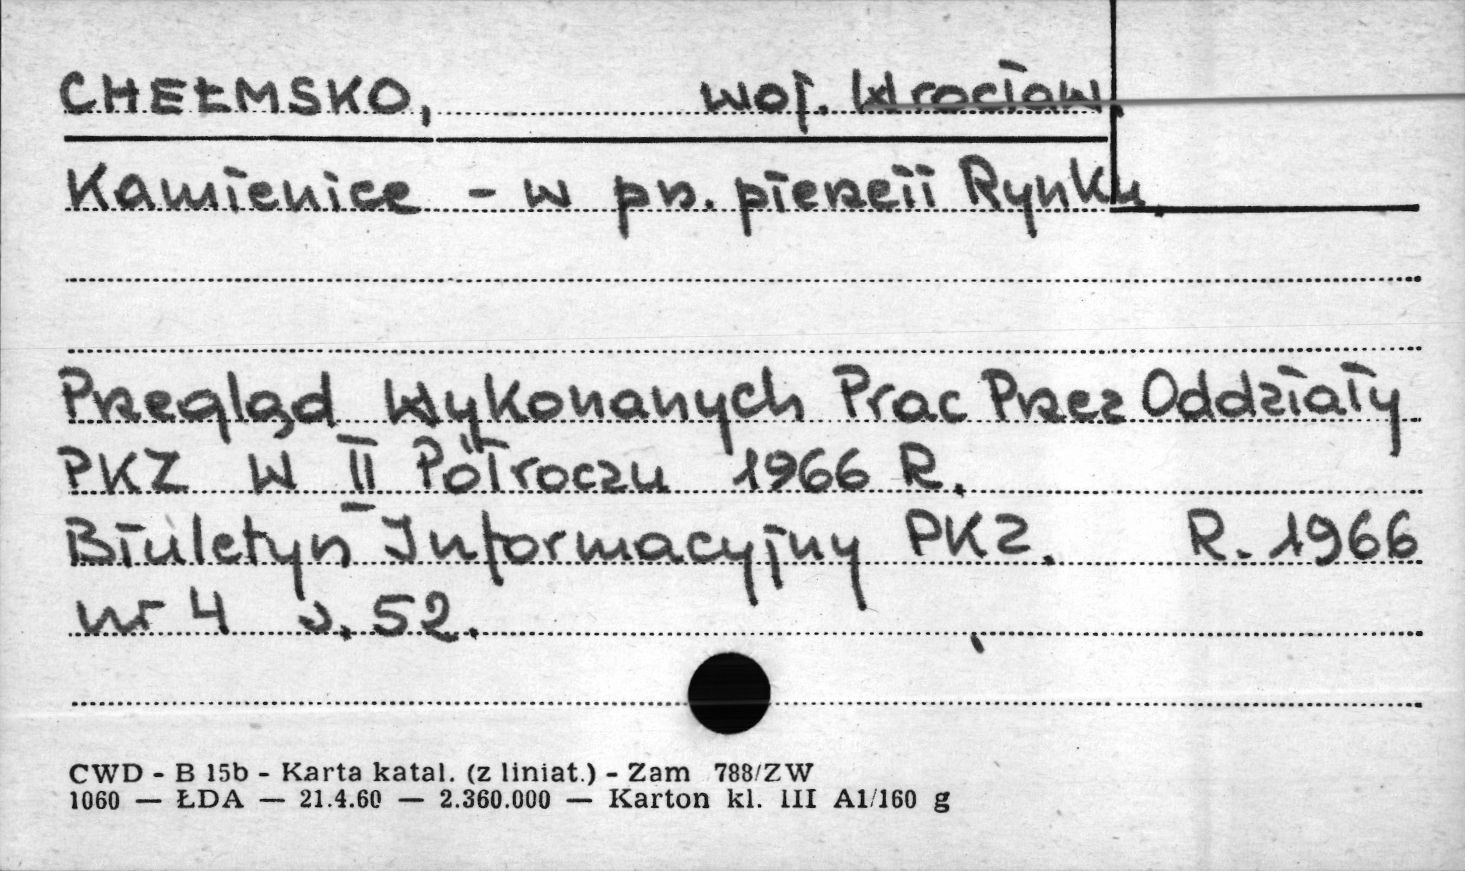 CHEŁMSKO, woj. Wrocław,
Kamienice - w pn. pierzeii Rynku.
Przegląd Wykonanych Prac Przez Oddziały
PKZ W II Półroczu 1966 R.
Biuletyn Informacyjny PKZ. R. 1966
nr 4 s. 52.
CWD - B 15b - Karta katal. (z liniat.) - Zam 788/ZW
1060 — ŁDA — 21.4.60 — 2.360.000 — Karton kl. III A1/160 g